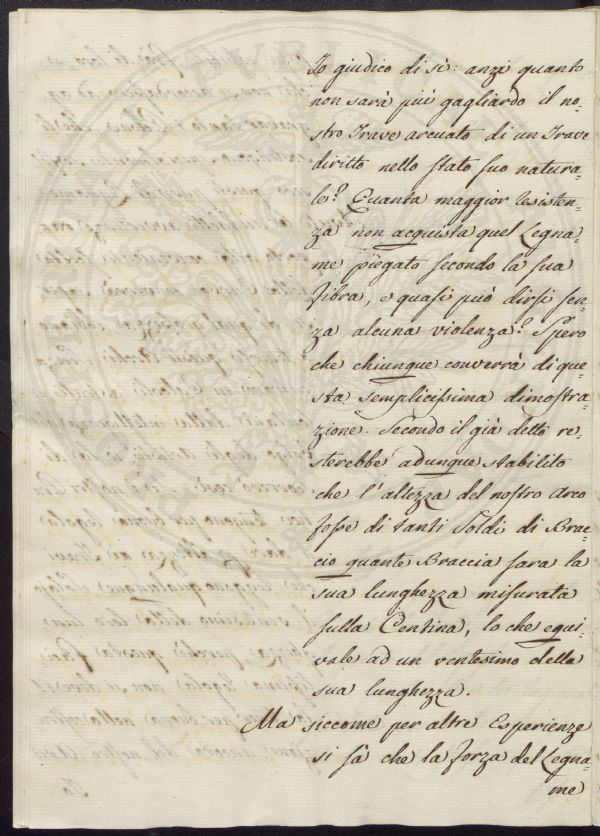 Io giudico di sì: anzi quanto
non sarà più gagliardo il no-
stro Trave arcuato di un Trave
diritto nello stato suo natura-
le? Quanta maggior resisten-
za non acquista quel Legna-
me piegato secondo la sua
fibra, e quasi può dirsi sen-
za alcuna violenza? Spero
che chiunque converrà di que-
sta semplicissima dimostra-
zione. Secondo il già detto re-
sterebbe adunque stabilito
che l'altezza del nostro Arco
fosse di tanti Soldi di Brac-
cio quante Braccia sara la
sua lunghezza misurata
sulla Centina, lo che equi-
vale ad un ventesimo della
sua lunghezza.
Ma siccome per altre Esperienze
si sà che la forza del Legna-
me